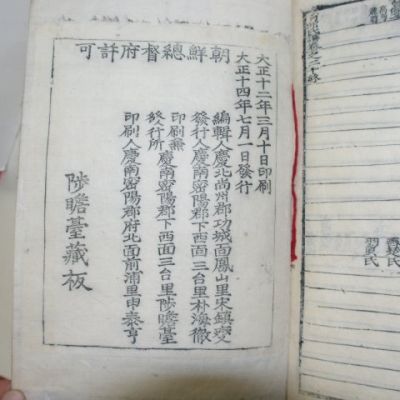 朝鮮總督府許可
大正十二年三月十日印刷
大正十四年七月一日發行
編輯人慶北尚州郡功城面鳳山里宋鎮夔
發行人慶南密陽郡下西面三台里朴海徹
印刷兼
發行所 慶南密陽郡下西面三台里陟瞻臺
印刷人慶南密陽郡府北面前浦里申泰亨
陟瞻臺藏板